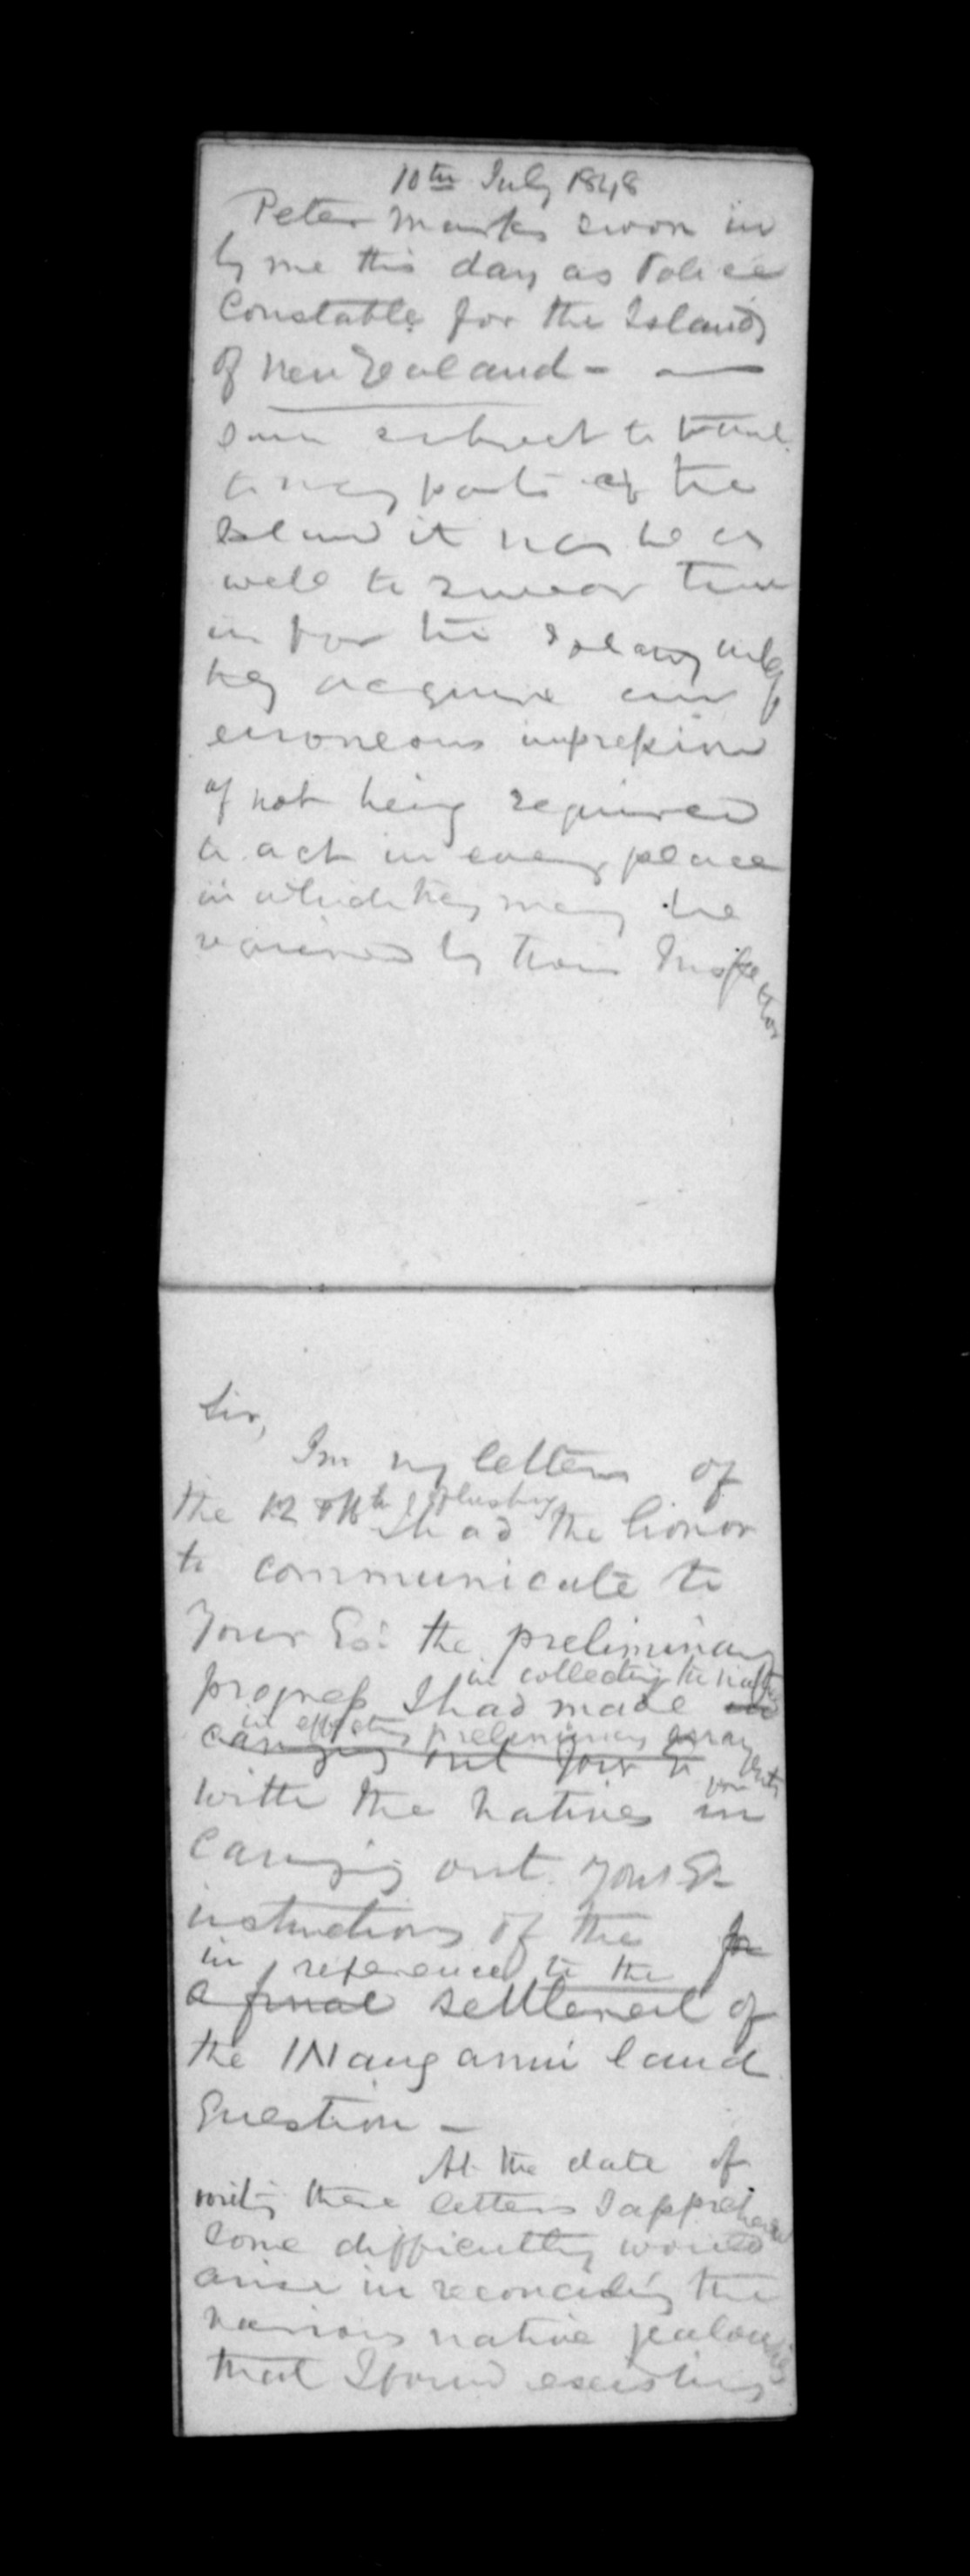 10th July 1848
Peter Marks sworn in
by me this day as Police
Constable for the Islands
of New Zealand -
subject to
to many parts of the
Island it may be as
well to swear them
in for the Islands
they acquire an
erroneous impression
of not being required
to act in every place
in which they may be
required by their Inspector
Sir,
In my letters of
the 12 & 16th
I had the honor
to communicate to
Your Ex: the preliminary
in collecting the natives
progress I had made in
in effecting preliminary arrangements
carrying out your
with the natives in
carrying out your Ex
instructions of the
in reference to the
a final settlement of
the Wanganui land
Question -
At the date of
writing these letters I apprehended
some difficulty would
arise in reconciling the
various native jealousies
that I found existing